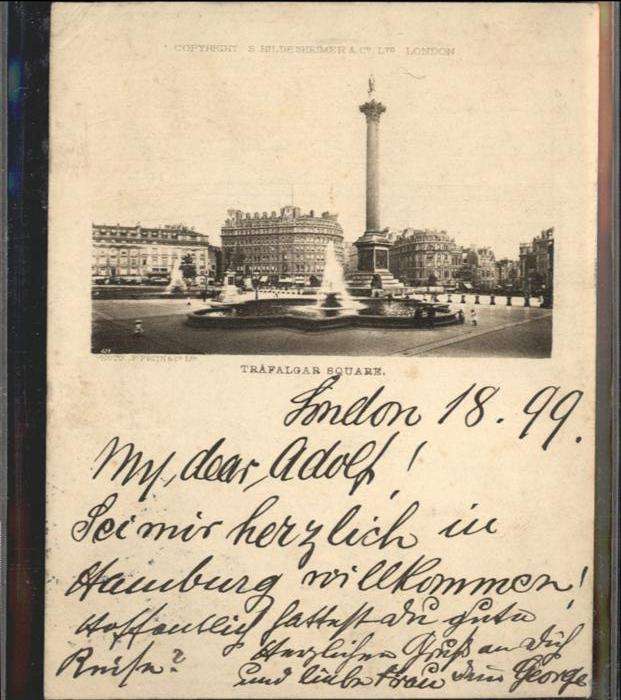 COPYRIGHT S. HILDESHEIMER & Co. LTD LONDON
TRAFALGAR SQUARE.
London 18. 99.
My dear Adolf!
Sei mir herzlich in
Hamburg willkommen!
Hoffentlich hattest du gute
Reise? Herzlichen Gruß an Dich
und liebe Frau Dein George